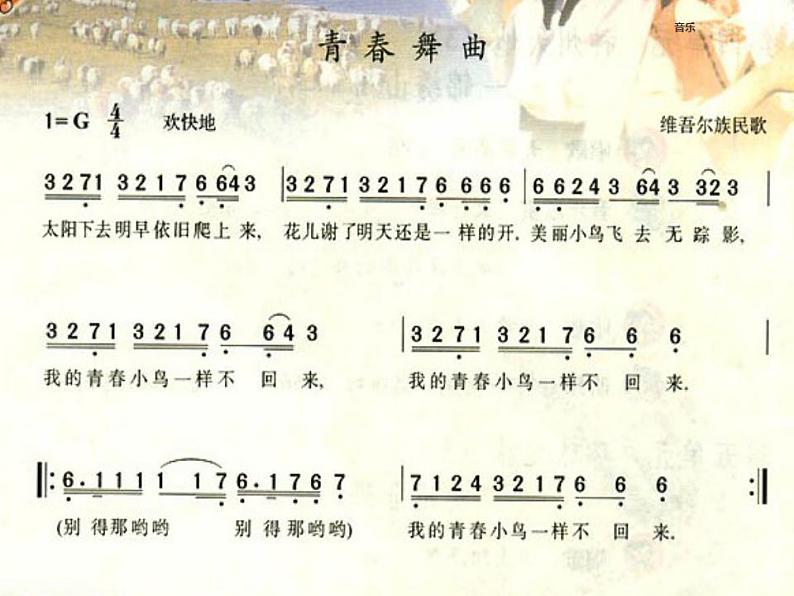 音乐
青春舞曲
1=G 4/4 欢快地 维吾尔族民歌
3 2 7 1 3 2 1 7 6 6 6 4 3 | 3 2 7 1 3 2 1 7 6 6 6 6 | 6 6 2 4 3 3 6 4 3 3 2 3 |
太阳下去明早依旧爬上来, 花儿谢了明天还是一样的开. 美丽小鸟飞去无踪影,
3 2 7 1 3 2 1 7 6 6 4 3 | 3 2 7 1 3 2 1 7 6 6 6 |
我的青春小鸟一样不回来, 我的青春小鸟一样不回来.
‖: 6 · 1 1 1 1 1 7 6 · 7 1 7 6 7 | 7 1 2 4 3 2 1 7 6 6 6 :‖
(别得那哟哟 别得那哟哟) 我的青春小鸟一样不回来.